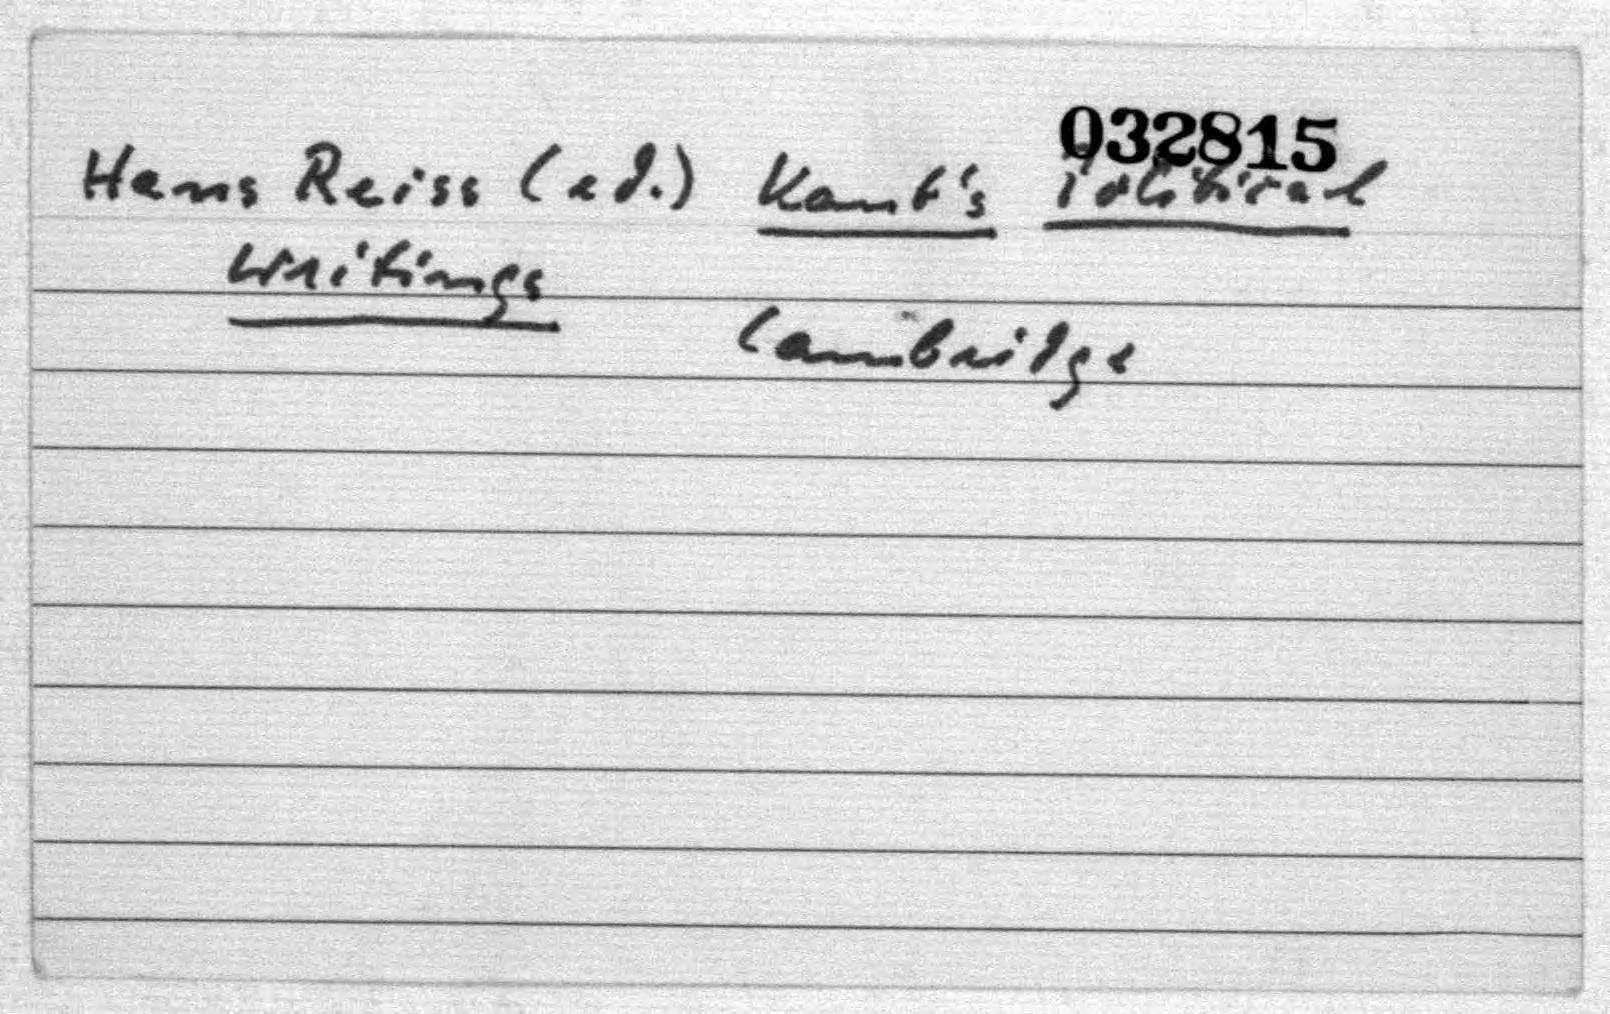 032815
Hans Reiss (ed.) Kant's Political
Writings
Cambridge